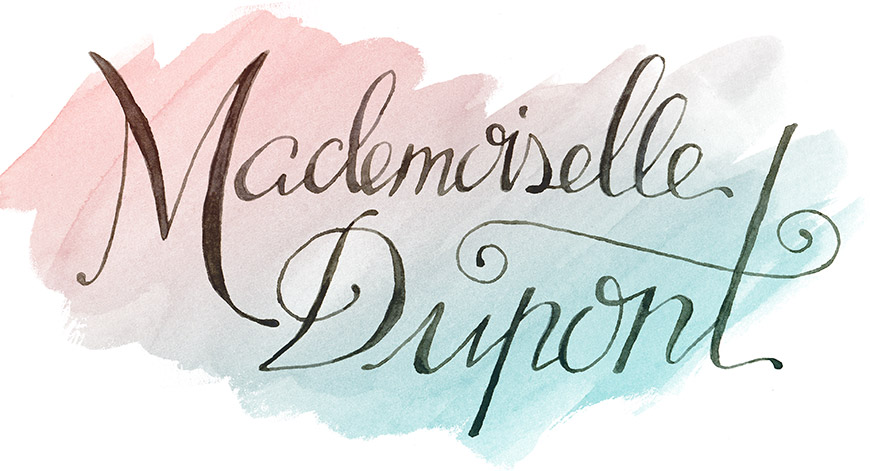 Mademoiselle
Dupont